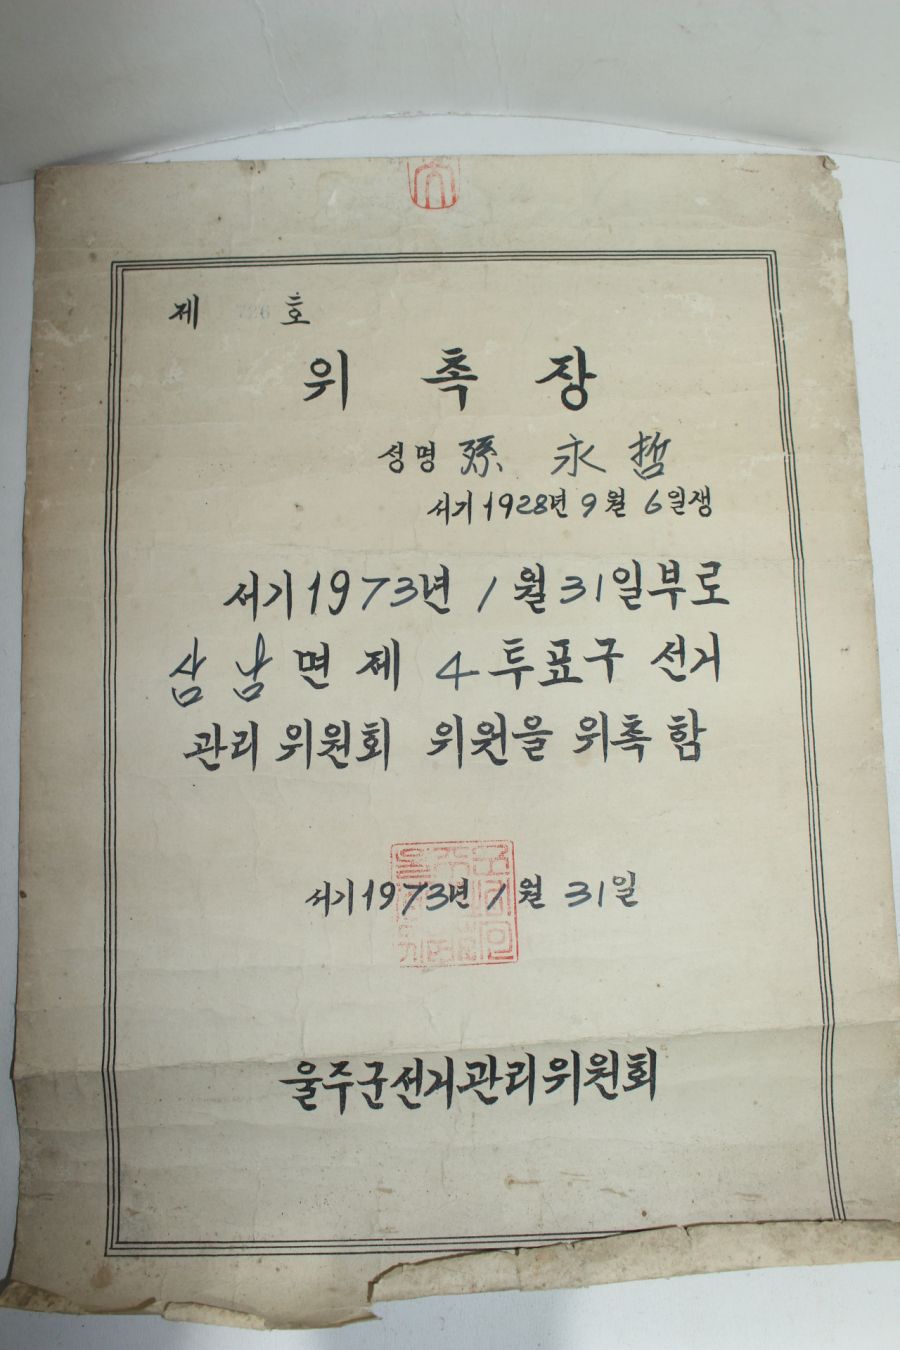 제 726 호
위 촉 장
성명 孫 永 哲
서기 1928년 9월 6일생
서기 1973년 1월 31일부로
삼남면 제 4 투표구 선거
관리 위원회 위원을 위촉함
서기 1973년 1월 31일
울주군선거관리위원회